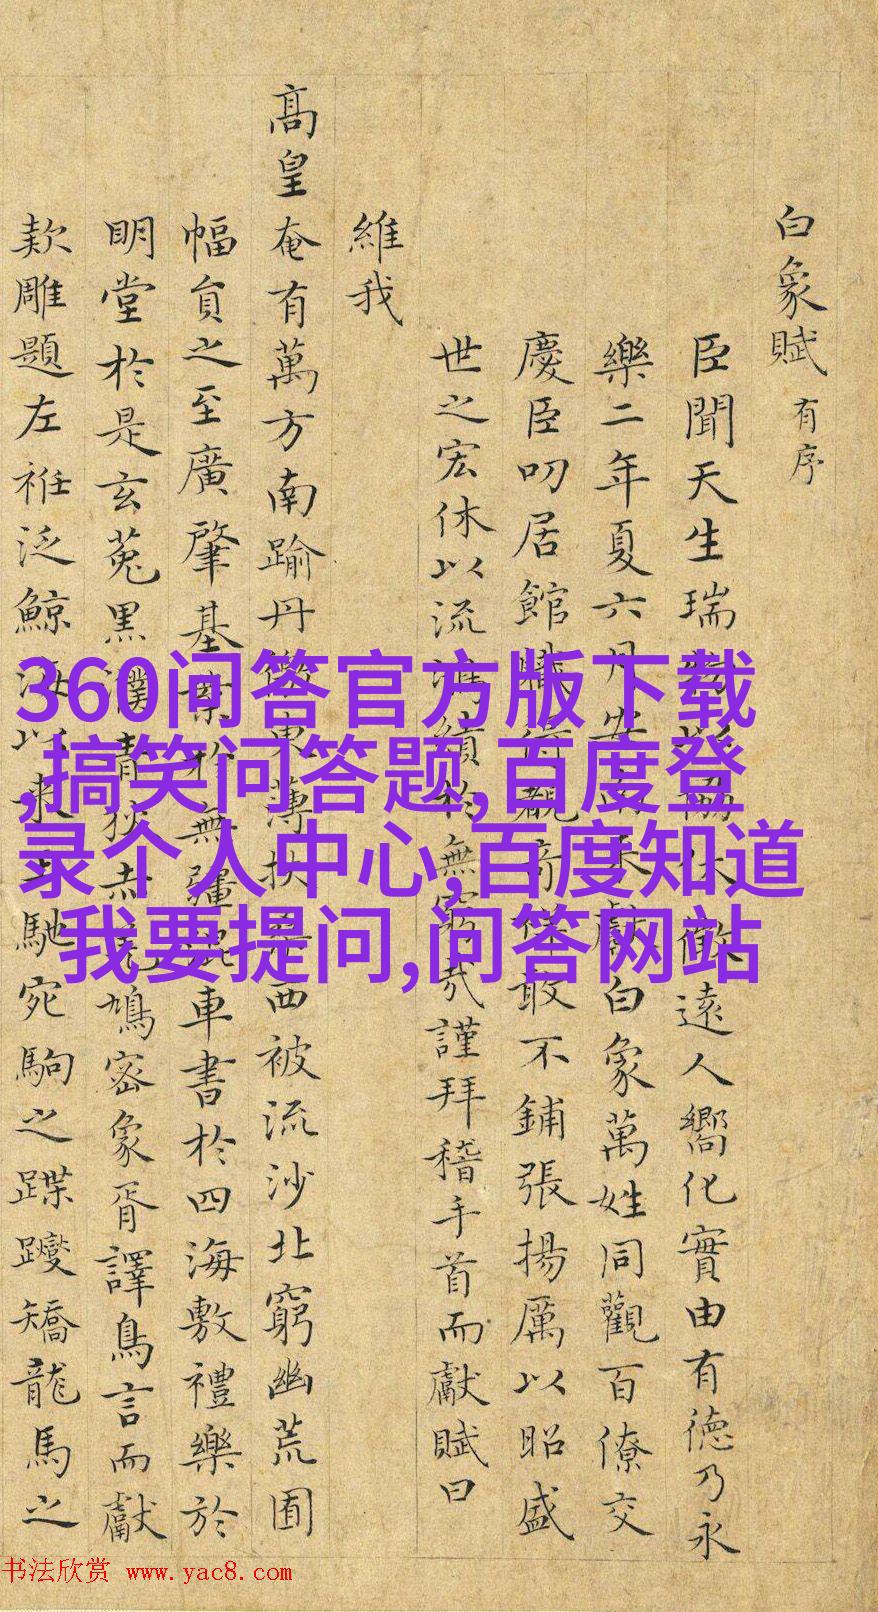 白象賦有序
臣聞天生瑞協休徵遠人嚮化實由有德乃永
樂二年夏六月安南來獻白象萬姓同觀百僚交
慶臣叨居館職觀奇祥敢不鋪張揚厲以昭盛
世之宏休以流鴻績於無窮哉謹拜稽手首而獻賦曰
維我
高皇奄有萬方南踰丹徼東薄扶桑西被流沙北窮幽荒囿
幅員之至廣肇基業於無疆混車書於四海敷禮樂於
明堂於是玄菟黑濮青狄赤鳩密象胥譯鳥言而獻
款雕題左衽泛鯨海以來王馳宛駒之蹀躞矯龍馬之
360问答官方版下载
,搞笑问答题,百度登
录个人中心,百度知道
我要提问,问答网站
书法欣赏 www.yac8.com